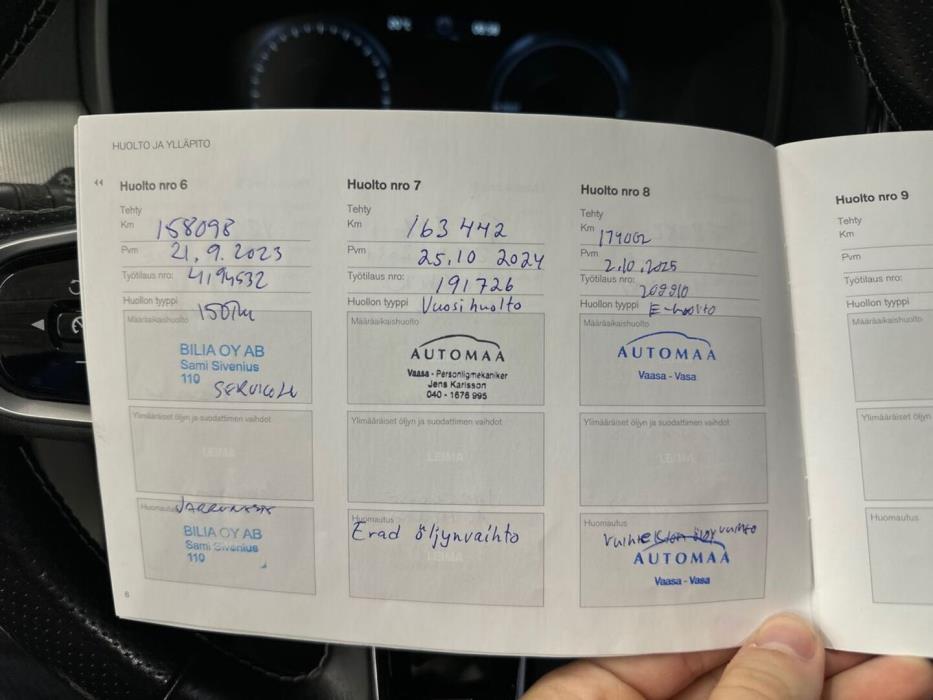 HUOLTO JA YLLÄPITO
Huolto nro 6
Tehty
Km 158098
Pvm 21.9.2023
Työtilaus nro: 4194532
Huollon tyyppi 150Tkm
Määräaikaishuolto
BILIA OY AB
Sami Sivenius
110
Ylimääräiset öljyn ja suodattimen vaihdot
LEIMA
Huomautus
BILIA OY AB
Sami Sivenius
110
6
Huolto nro 7
Tehty
Km 163 442
Pvm 25.10 2024
Työtilaus nro: 191726
Huollon tyyppi Vuosihuolto
Määräaikaishuolto
AUTOMAA
Vaasa - Personligmekaniker
Jens Karlsson
040 - 1676 995
Ylimääräiset öljyn ja suodattimen vaihdot
LEIMA
Huomautus
Erad öljynvaihto
Huolto nro 8
Tehty
Km 174002
Pvm 2.10.2025
Työtilaus nro:
Huollon tyyppi E-huolto
Määräaikaishuolto
AUTOMAA
Vaasa - Vasa
Ylimääräiset öljyn ja suodattimen vaihdot
LEIMA
Huomautus
vaihto
AUTOMAA
Vaasa - Vasa
Huolto nro 9
Tehty
Km
Pvm
Työtilaus nro:
Huollon tyyppi
Määräaikaishuolto
Ylimääräiset öljyn
Huomautus